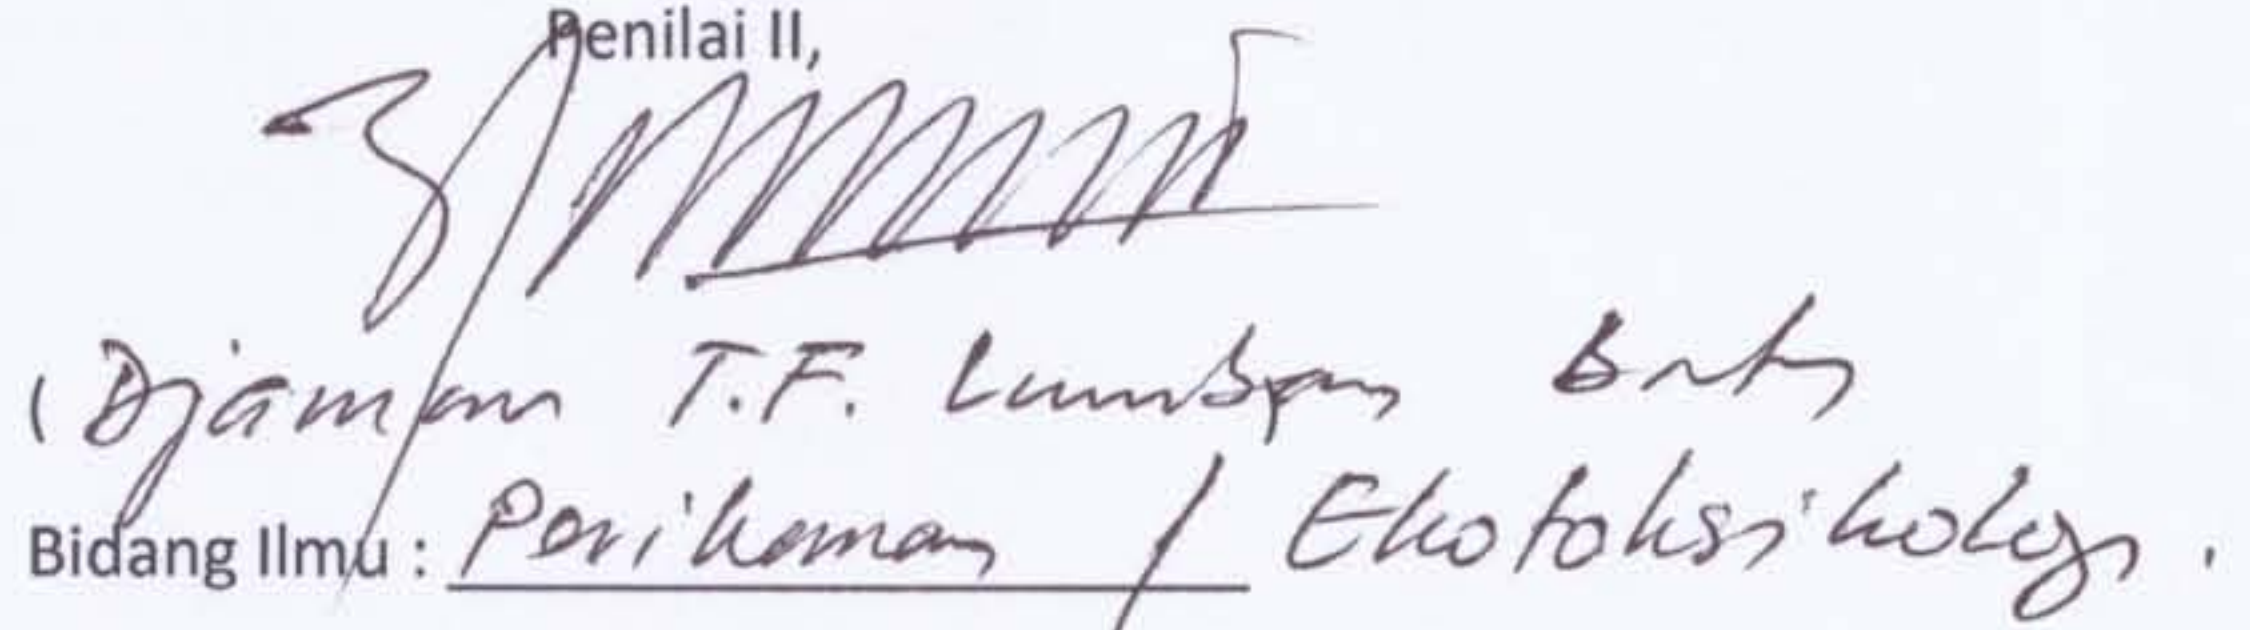 Penilai II,
(Djaman T.F. Lumban Batu
Bidang Ilmu : Perikanan / Ekotoksikologi.